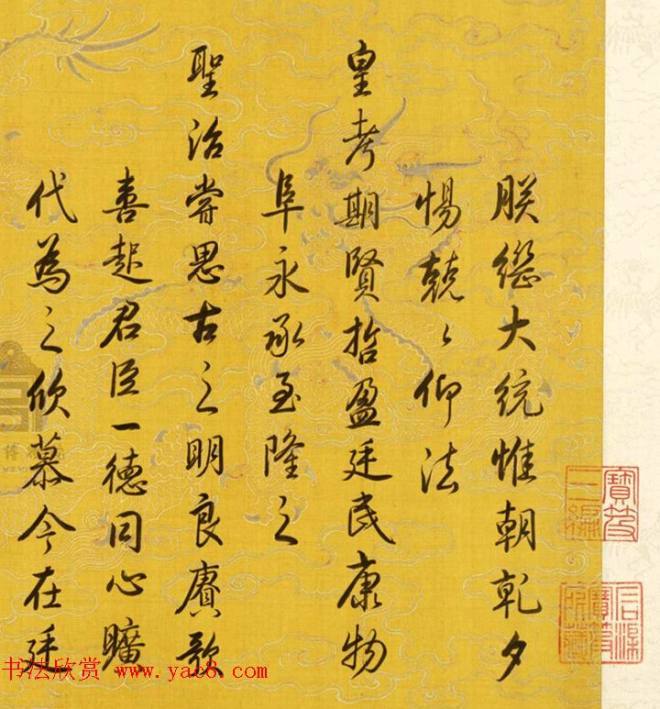 朕缵大统惟朝乾夕
惕兢〻仰法
皇考期賢哲盈廷民康物
阜永承至隆之
聖治嘗思古之明良賡歌
喜起君臣一德同心曠
代為之欣慕今在廷
寶笈
三編
石渠
寶笈
所藏
书法欣赏 www.yac8.com